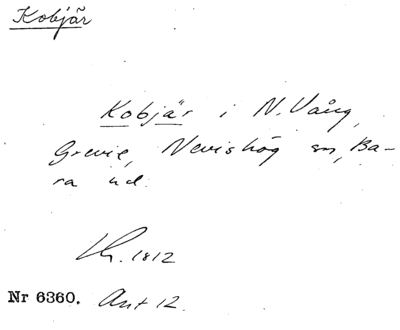 Kobjär
Kobjär i N. Vång,
Grevie, Nevishög sn, Ba-
ra hd.
Lh. 1812
Nr 6360. Ant 12.